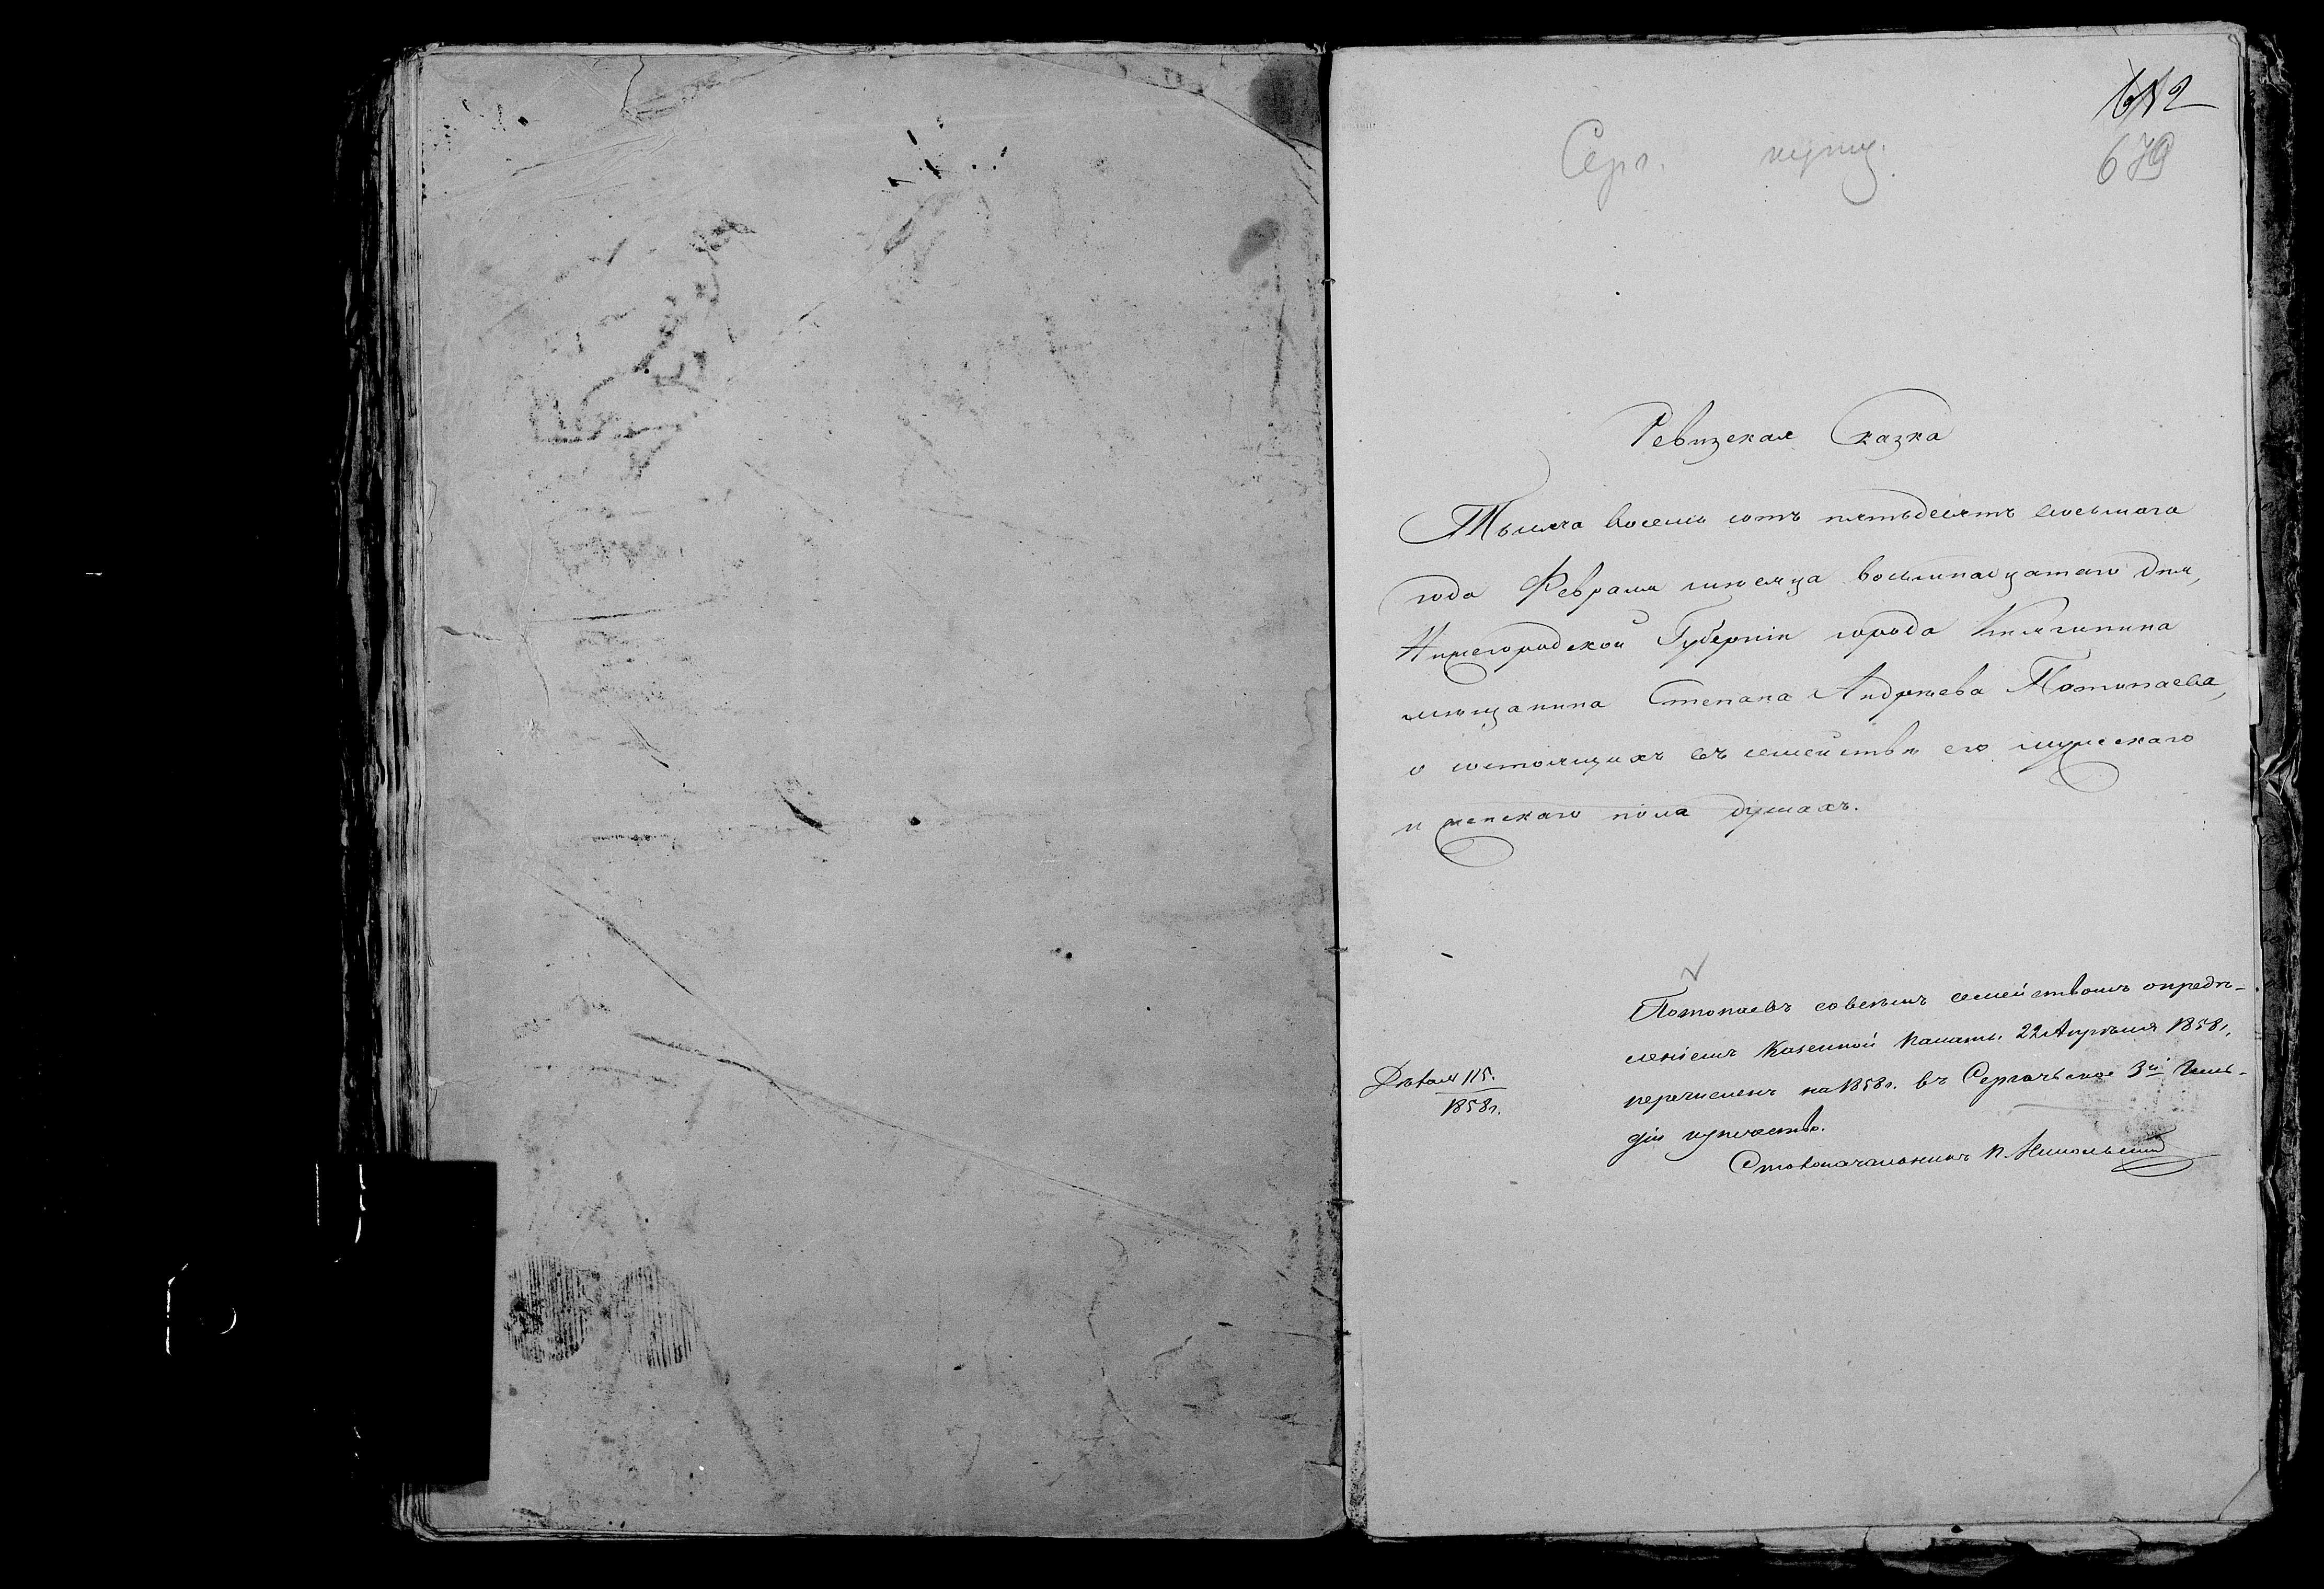 652
Серг. купц.
679
Ревизская Сказка
Тысяча восемь сотъ пятьдесятъ восьмаго
года Февраля мѣсяца восьмнадцатаго дня,
Нижегородской Губерніи города Княгинина
мѣщанина Степана Андреева Потопаева,
о состоящихъ въ семействѣ его мужескаго
и женскаго пола душахъ.
Потопаевъ со всемъ семействомъ опредѣ-
леніемъ Казенной Палаты. 22 Апрѣля 1858г.
перечисленъ на 1858г. въ Сергачьское 3й Гиль-
діи купечество.
Столоначальникъ Н. Никольскій
Дѣло № 115.
1858г.